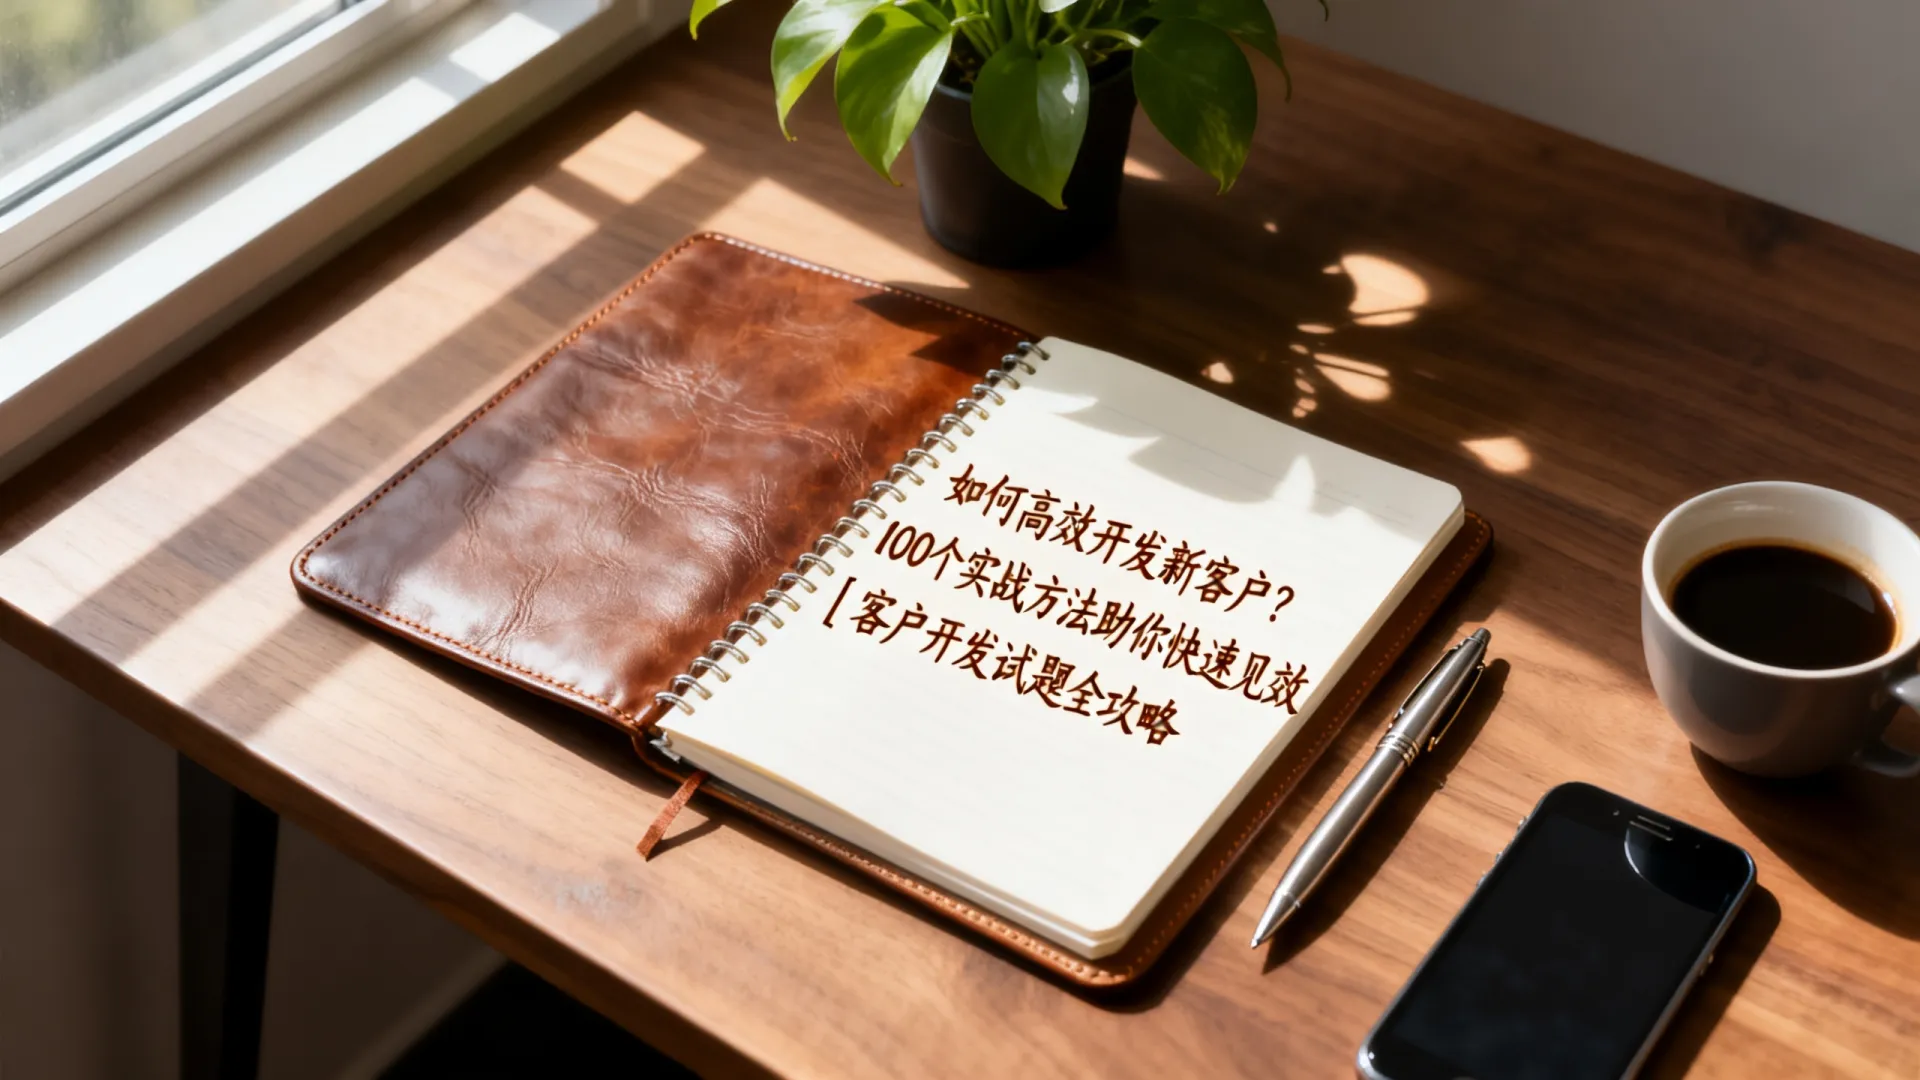 如何高效开发新客户?
100个实战方法助你快速见效
[客户开发试题全攻略